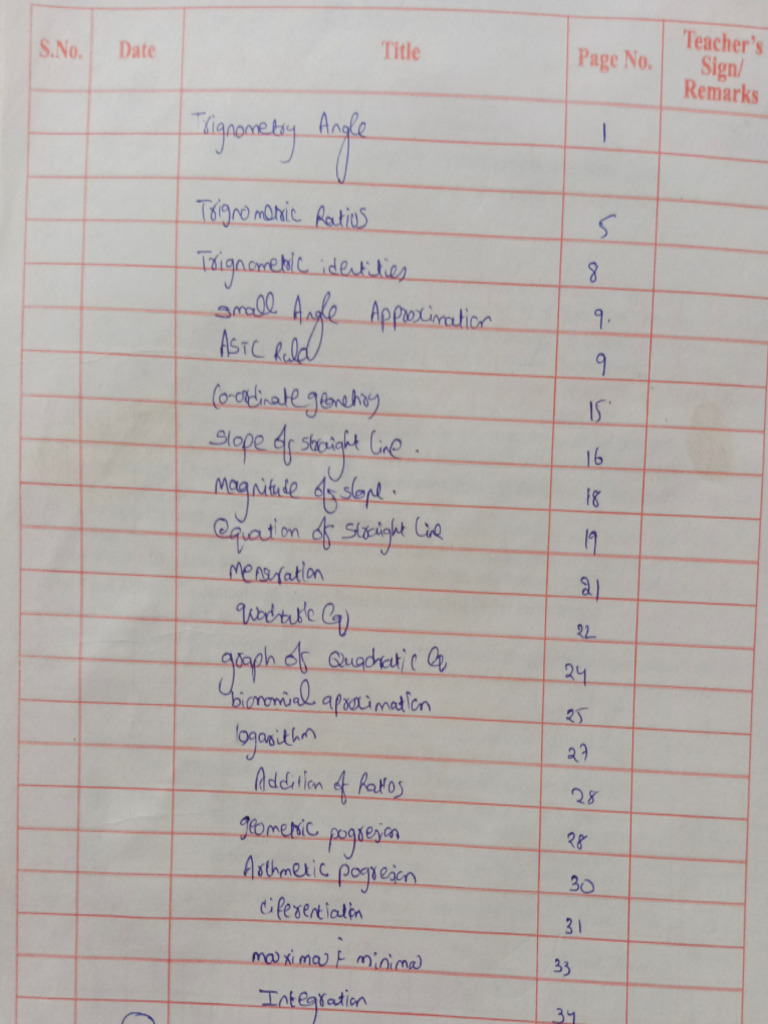 S.No. Date Title Page No. Teacher's Sign/ Remarks
Trignometry Angle 1
Trignometric Ratios 5
Trignometric identities 8
Small Angle Approximation 9.
ASTC Rule 9
Co-ordinate geometry 15
Slope of straight line. 16
Magnitude of slope. 18
equation of straight line 19
Mensration 21
quadratic Eq 22
graph of Quadratic Eq 24
bionomial aproximation 25
logarithm 27
Addition of Ratios 28
geometric pogresion 28
Arthmetic pogresion 30
diferentiation 31
maxima & minima 33
Integration 34